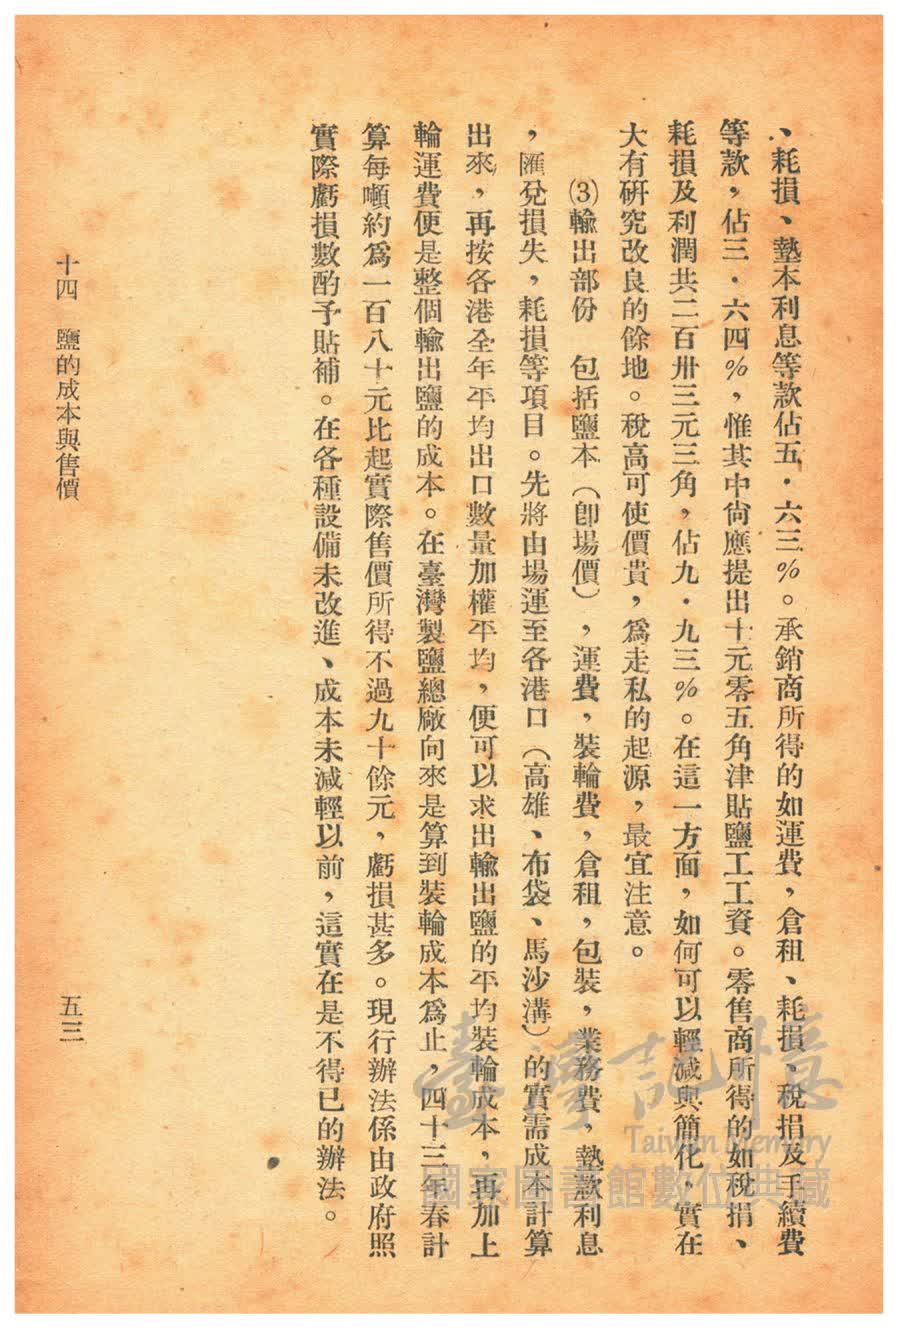 、耗損、墊本利息等款佔五．六三%。承銷商所得的如運費，倉租、耗損、稅捐及手續費
等款，佔三．六四%，惟其中尙應提出十元零五角津貼鹽工工資。零售商所得的如稅捐、
耗損及利潤共二百卅三元三角，佔九．九三%。在這一方面，如何可以輕減與簡化，實在
大有硏究改良的餘地。稅高可使價貴，爲走私的起源，最宜注意。
⑶輸出部份　包括鹽本（卽場價），運費，裝輪費，倉租，包裝，業務費，墊款利息
，匯兌損失，耗損等項目。先將由場運至各港口（高雄、布袋、馬沙溝）的實需成本計算
出來，再按各港全年平均出口數量加權平均，便可以求出輸出鹽的平均裝輪成本，再加上
輪運費便是整個輸出鹽的成本。在臺灣製鹽總廠向來是算到裝輪成本爲止，四十三年春計
算每噸約爲一百八十元比起實際售價所得不過九十餘元，虧損甚多。現行辦法係由政府照
實際虧損數酌予貼補。在各種設備未改進、成本未減輕以前，這實在是不得已的辦法。
十四　鹽的成本與售價
五三
臺灣記憶
Taiwan Memory
國家圖書館數位典藏